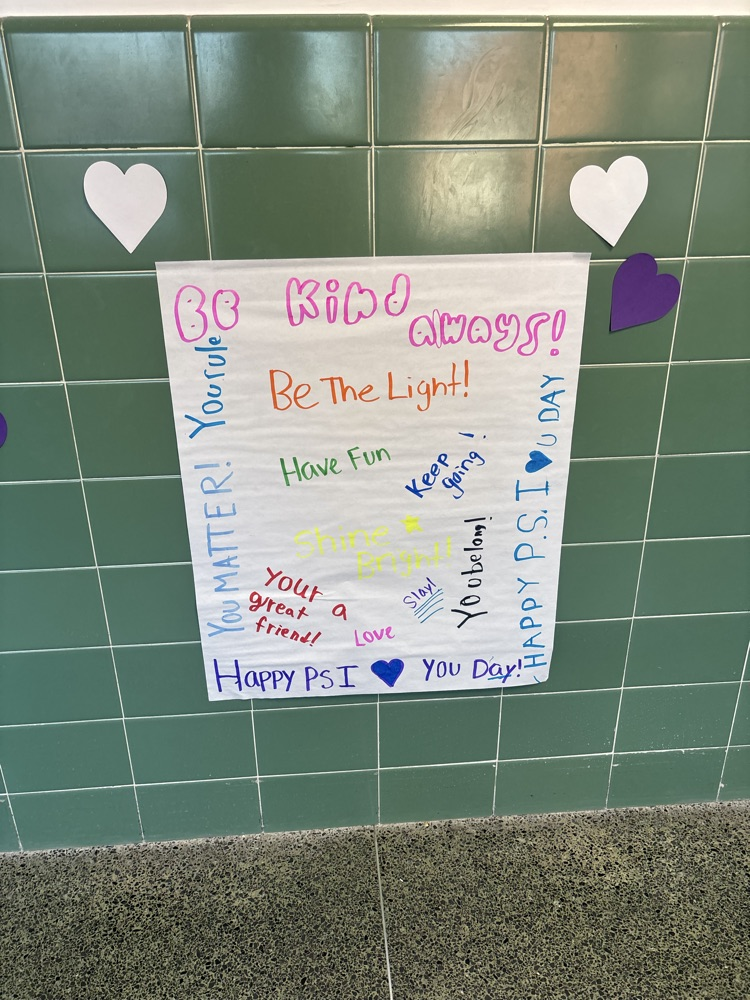 Be Kind
aways!
You rule
Be The Light!
Have Fun
Keep
going!
YOU MATTER!
Shine
Bright!
You belong!
HAPPY P.S. I ♥ U DAY
Your a
great
friend!
Slay!
Love
Happy PS I ♥ YOU Day!